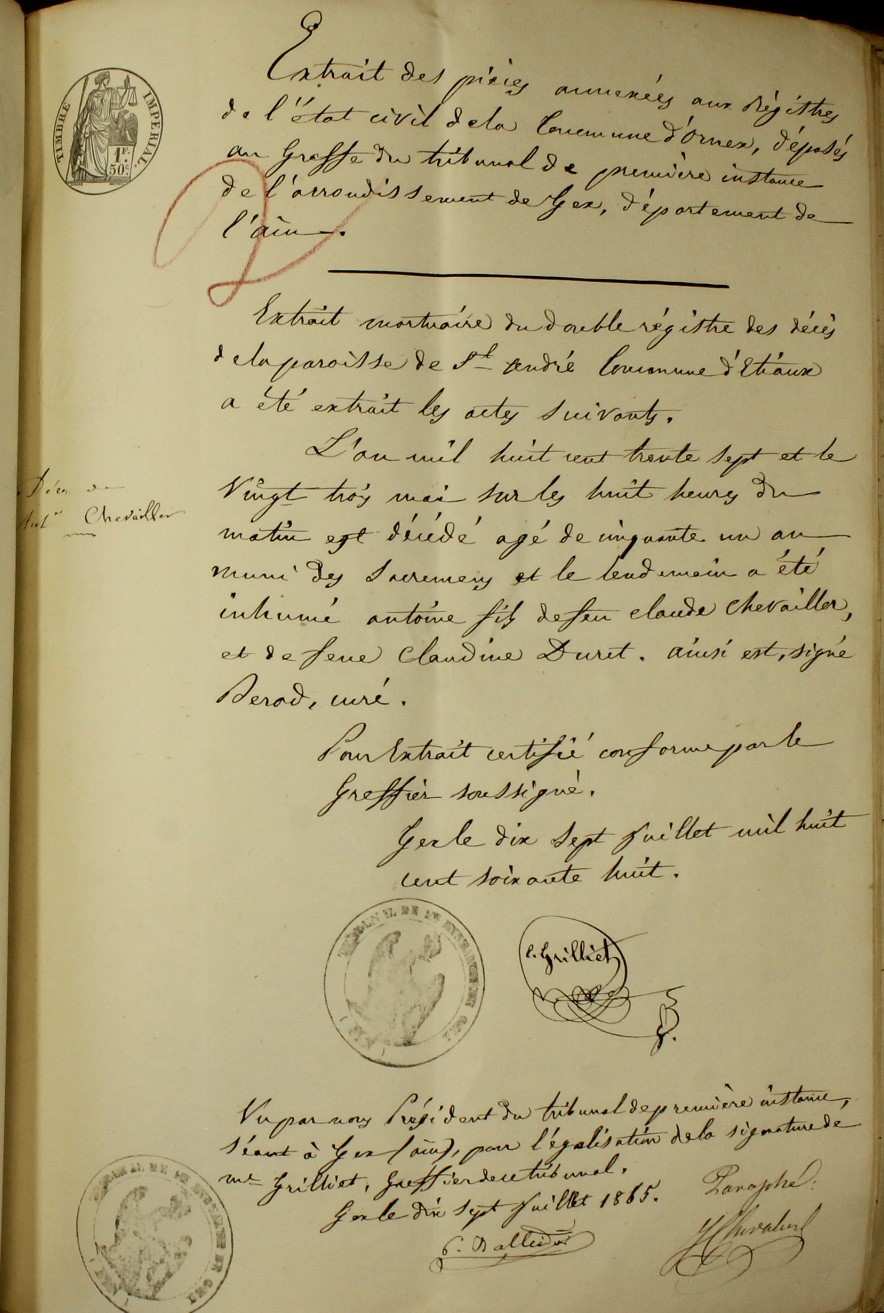 TIMBRE IMPERIAL
1F.
50c.
Extrait des pièces annexées aux Régistres
de l'état civil de la Commune d'Ornex, déposés
au Greffe du tribunal de première instance
de l'arrondissement de Gex, département de
l'ain.
Extrait mortuaire du double régistre des décès
de la paroisse de St. André Commune d'Etiaux
a été extrait les actes suivants.
L'an mil huit cent trente sept et le
Vingt trois mai sur les huit heures du
matin est décédé agé de cinquante un an
muni des sacremens et le lendemain a été
inhumé antoine fils de feu claude Chevailler,
et de feue Claudine Duret. ainsi est, signé
curé.
Décès de
Chevailler
Pour Extrait certifié conforme par le
Greffier soussigné.
Gex le dix sept Juillet mil huit
cent soixante huit.
Grilliet
Vu par nous Président du tribunal de première instance,
séant à Gex (ain), pour légalisation de la signature de
me Grilliet, Greffier de ce tribunal.
Gex le dix sept Juillet 1868.
Paraphé.